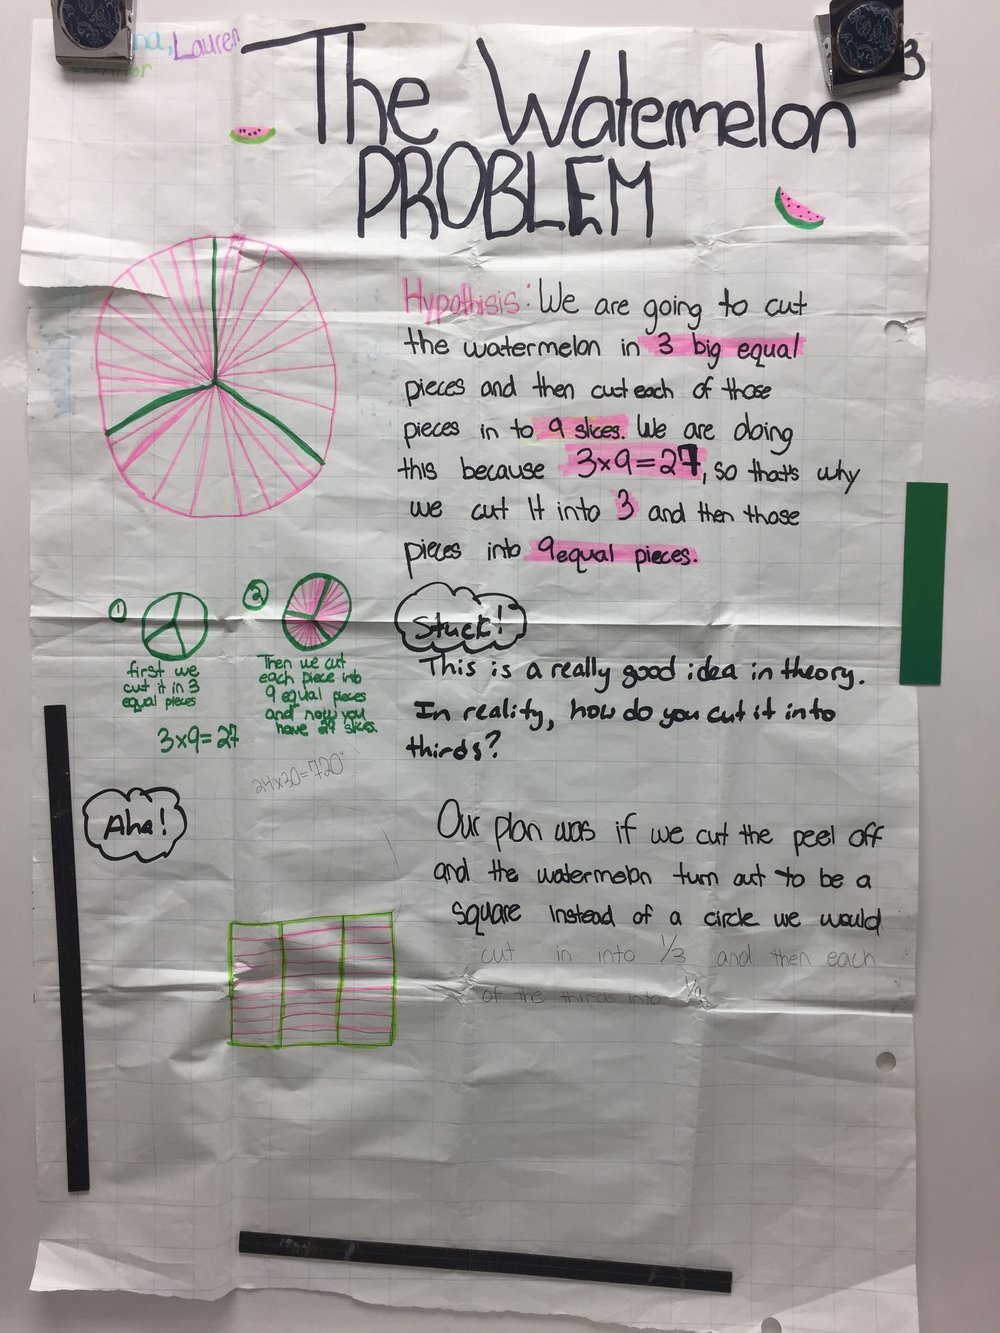 Lauren
The Watermelon
PROBLEM
3
Hypothisis: We are going to cut
the watermelon in 3 big equal
pieces and then cut each of those
pieces in to 9 slices. We are doing
this because 3x9=27, so that's why
we cut It into 3 and then those
pieces into 9 equal pieces.
1
first we
cut it in 3
equal pieces
2
Then we cut
each piece into
9 equal pieces
and now you
have 27 slices.
3x9=27
24x30=720
Stuck!
This is a really good idea in theory.
In reality, how do you cut it into
thirds?
Aha!
Our plan was if we cut the peel off
and the watermelon turn out to be a
square instead of a circle we would
cut in into 1/3 and then each
of the thirds into